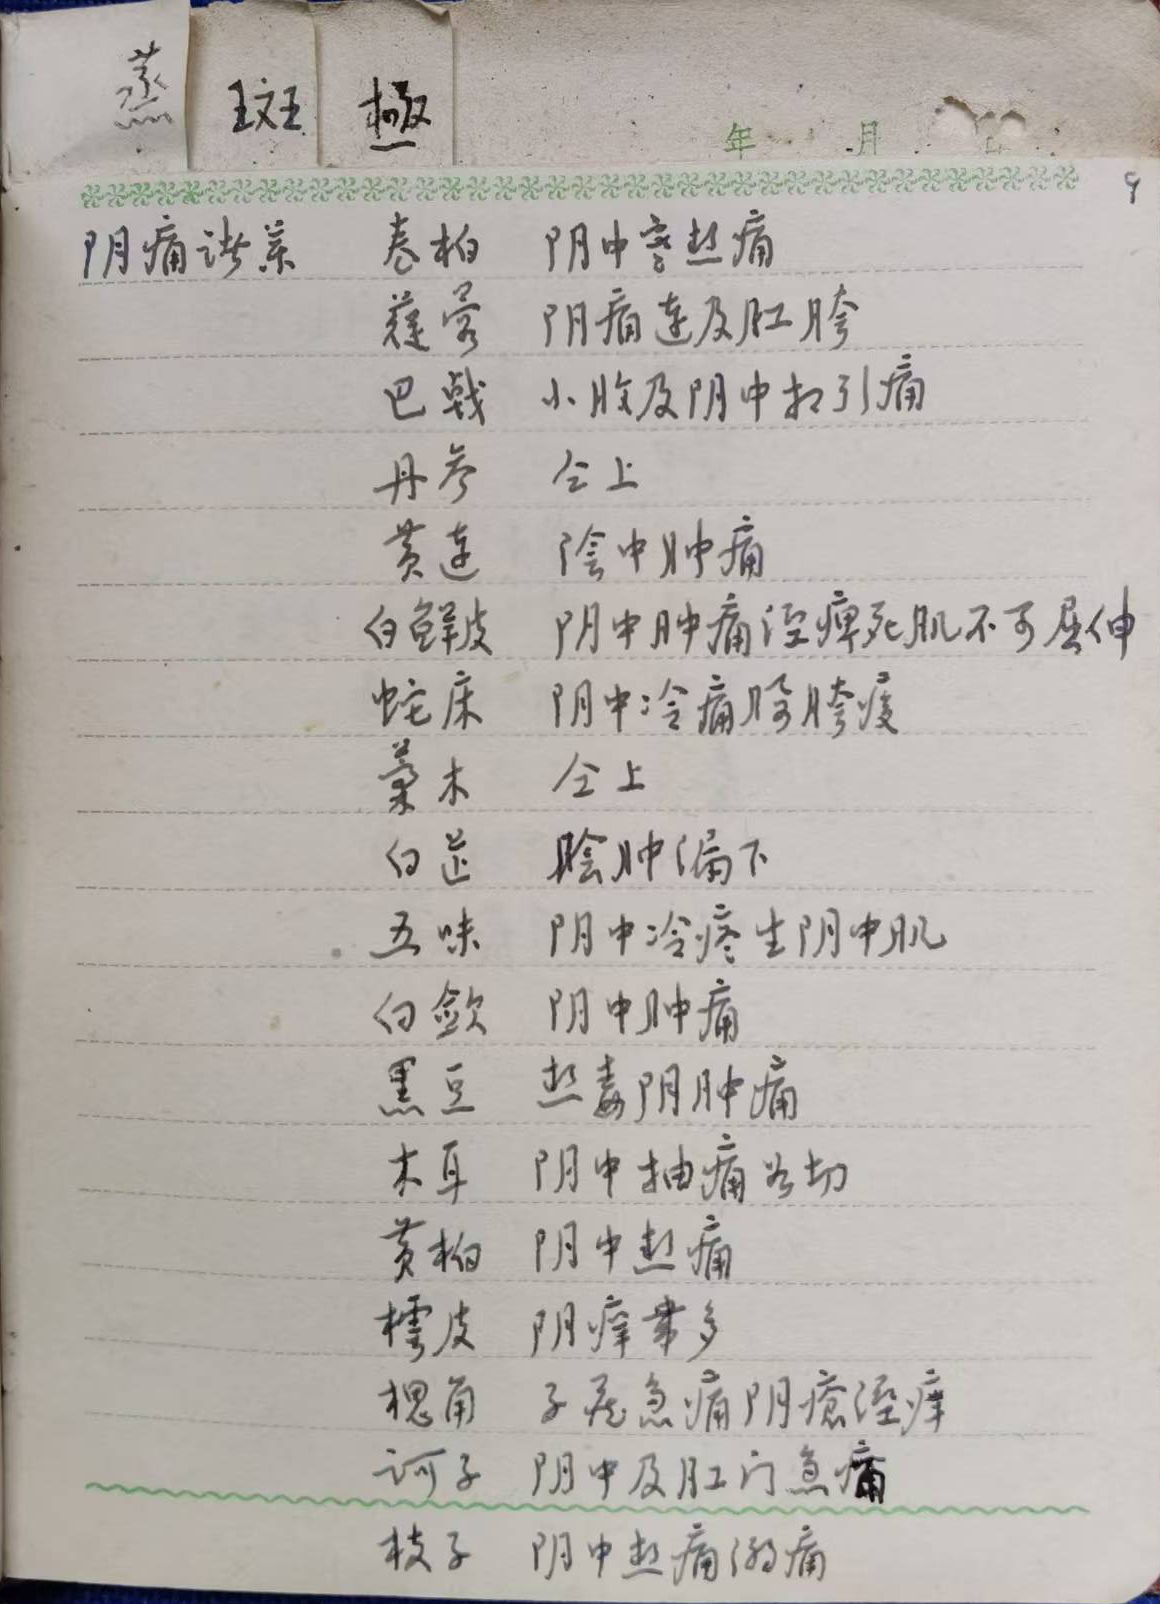 蒸 斑 極
年 月 日
9
阴痛诸药 卷柏 阴中寒热痛
蓯蓉 阴痛连及肛胯
巴戟 小腹及阴中相引痛
丹参 仝上
黄连 陰中肿痛
白鲜皮 阴中肿痛湿痹死肌不可屈伸
蛇床 阴中冷痛股胯痠
藁本 仝上
白芷 陰肿漏下
五味 阴中冷疼生阴中肌
白蔹 阴中肿痛
黑豆 热毒阴肿痛
木耳 阴中抽痛如切
黄柏 阴中热痛
樗皮 阴痒带多
槐角 子茬急痛阴疮湿痒
诃子 阴中及肛门急痛
枝子 阴中热痛溺痛